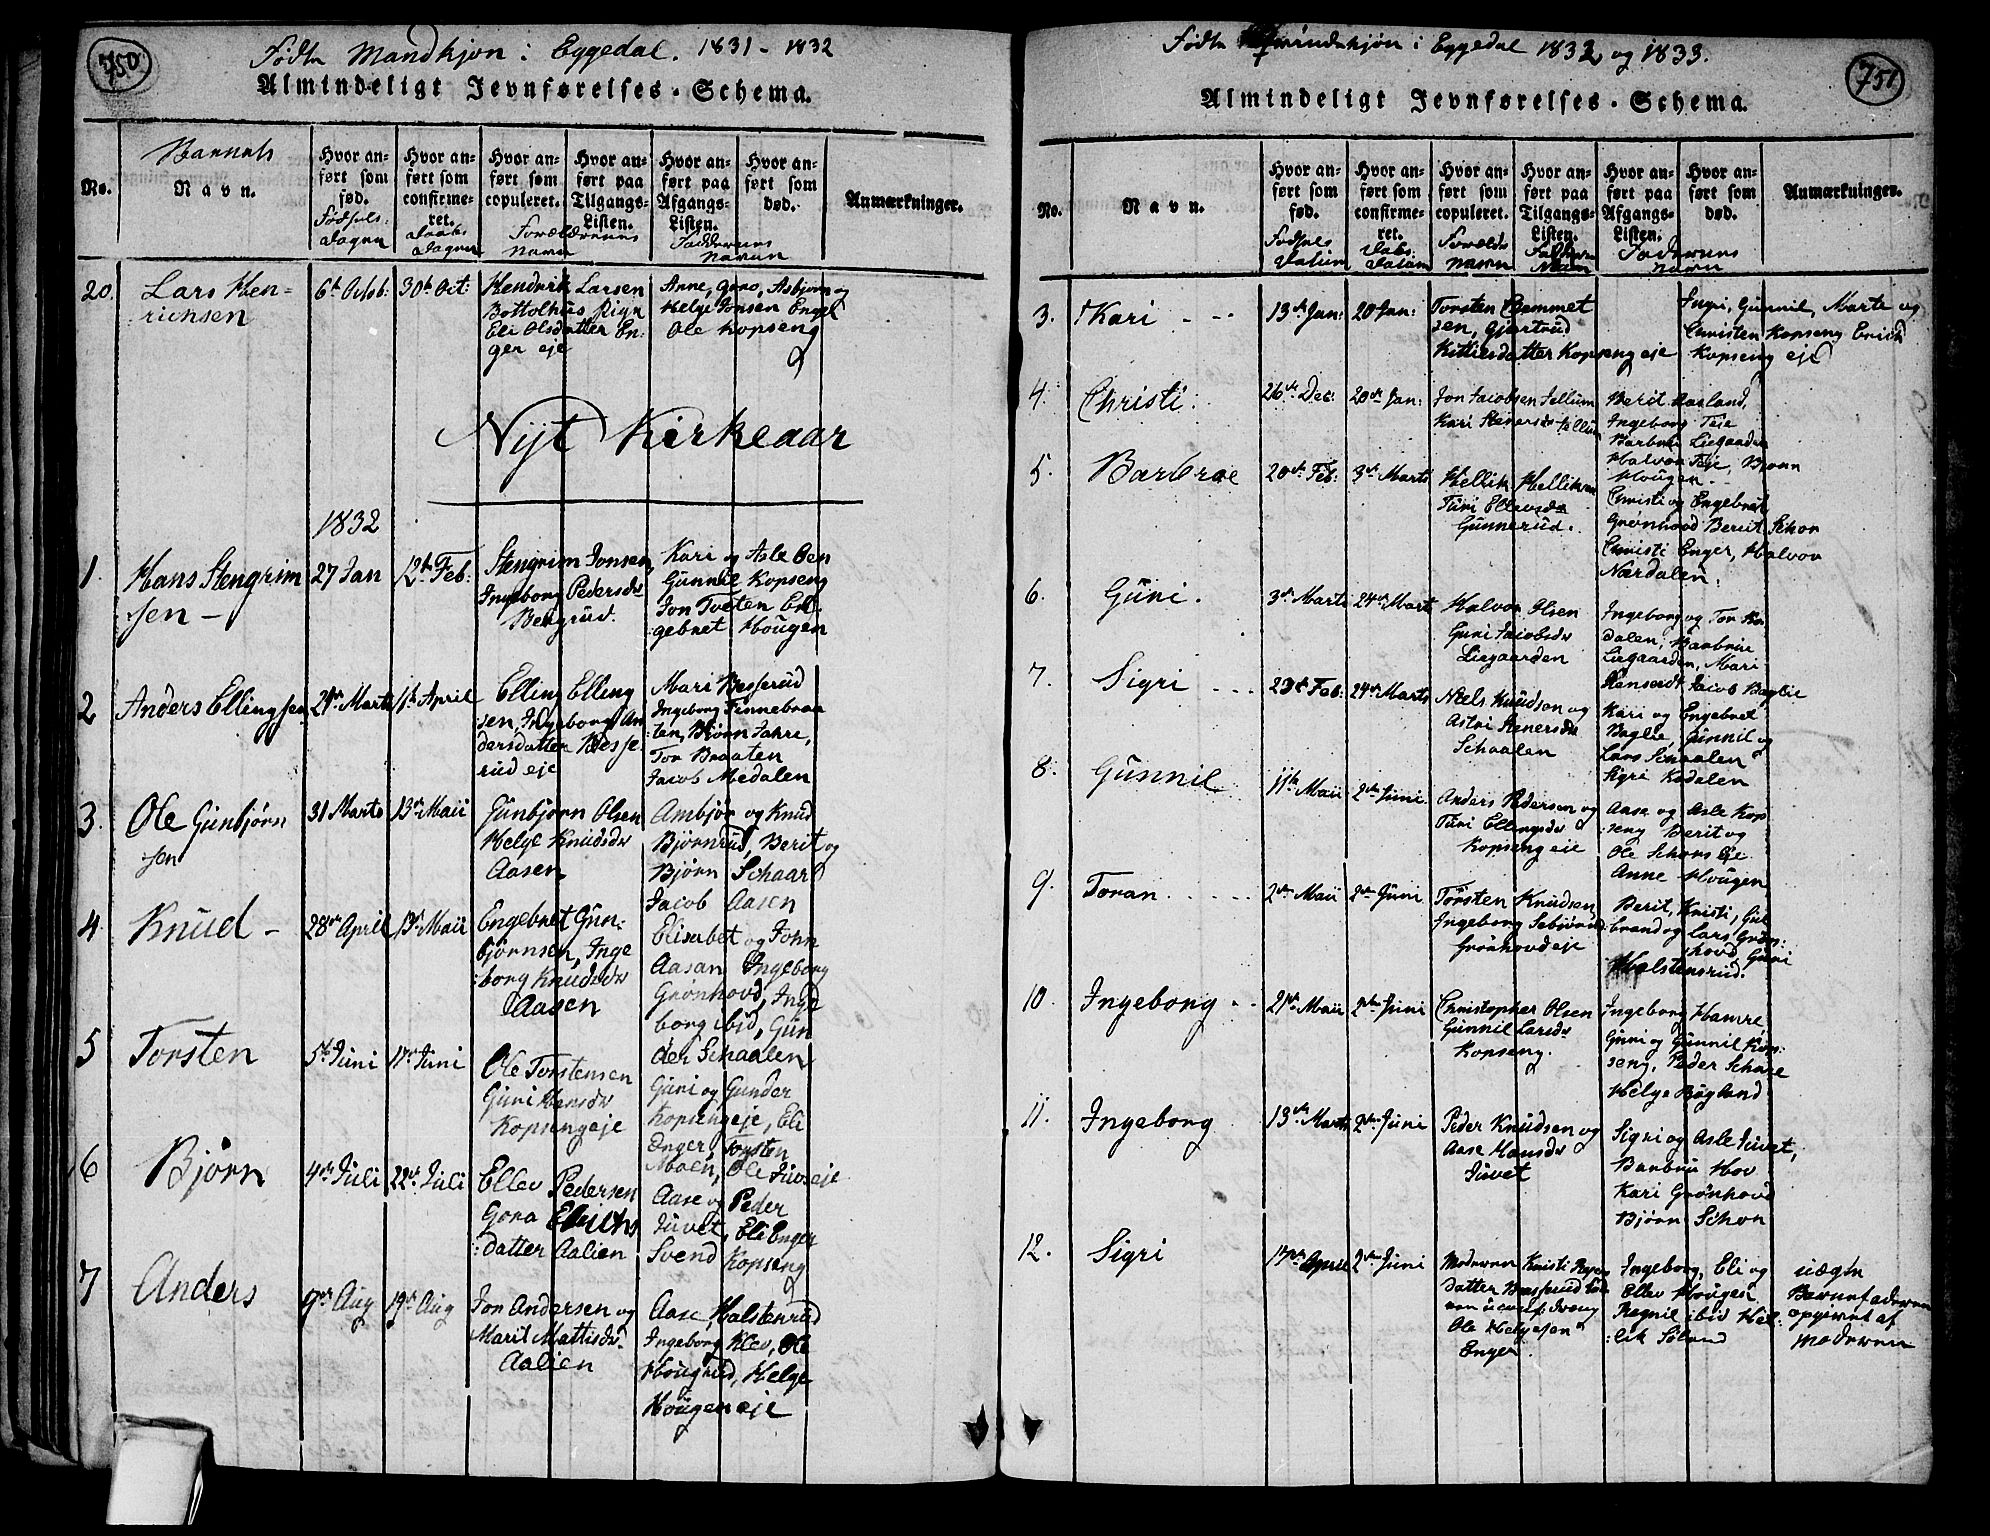 750.
Fødte Mandkjøn i Eggedal. 1831 - 1832
Almindeligt Jevnførelses-Schema.
No.
Barnets
Navn.
Hvor anført som
fød.
Fødsels
dagen
Hvor anført som
confirmeret.
Daabs
dagen
Hvor anført som
copuleret.
Hvor anført paa
Tilgangs-
Listen.
Forældrenes
navne
Hvor anført paa
Afgangs-
Listen.
Hvor anført som
død.
Faddernes
navne
Anmærkninger.
20. Lars Hen-
richsen
6te Octob: 30te Oct:
Hendrik Larsen
Bottolhus Pige
Eli Olsdatter En:
ger eje
Anne, Goro, Asbjørn og
Helge Jonsen Engel
Ole Kopseng
Nyt Kirkeaar
1832
1. Hans Stengrim
sen -
27 Jan 12te Feb:
Stengrim Jonsen,
Ingeborg Pedersdr
Bergrud.
Kari og Asle Oen
Gunnil Kopseng
Jon Tveten En
gebret Hougen
2 Anders Ellingsen 21de Marts 1ste April
Elling Elling
sen, Ingeborg An
dersdatter Besse
rud eje
Mari Besserud
Ingeborg Finnebraa
ten, Bjørn Jahre,
Tor Braaten
Jacob Medalen
3. Ole Gunbjørn
sen
31 Marts 13de Maii
Gunbjørn Olsen
Helge Knudsdr
Aasen
Ambjør og Knud
Bjørnrud, Berit og
Bjørn Schaar
Jacob Aasen
4. Knud - 28de April 13de Maii
Engebret Gun:
bjørnsen, Inge
borg Knudsdr
Aasen
Elisabet og John
Aasan Ingeborg
Grønhovd, Inge
borg ibid, Gun
der Schaalen
5 Torsten 5te Juni 17de Juni
Ole Torstensen
Guri Hansdr
Kopsengeje
Guri og Gunder
Kopsengeje, Eli
Enger, Torsten
Moen, Ole Juvseje
6 Bjørn 4de Juli 22de Juli
Ellev Pedersen
Gora Elliths
datter Aalien
Aase og Peder
Juvet, Eli Enger
Svend Kopseng
7 Anders 9de Aug 19de Aug
Jon Andersen og
Marit Mattisdr.
Aalien
Aase Halstenrud
Ingeborg Klev, Ole
Hougrud, Helge
Hougen eje
751
Fødte Qvindekjøn i Eggedal 1832 og 1833.
Almindeligt Jevnførelses-Schema.
No.
Navn.
Hvor anført som
fød.
Fødsels
Datum
Hvor anført som
confirmeret.
Daabs
Datum
Hvor anført som
copuleret.
Forældr
navne
Hvor anført paa
Tilgangs-
Listen.
Hvor anført paa
Afgangs-
Listen.
Hvor anført som
død.
Faddernes
navne
Anmærkninger.
3. Kari - - - 13de Jan: 20 Jan:
Torsten Clemmet
sen, Gjertrud
Kittilsdatter Kopseng eje
Ingri, Gunnil, Marte og
Christen Kopseng Erich
Kopseng eje
4. Christi. 26de Dec: 20de Jan:
Jon Jacobsen Tellum
Kari Stenersdr Tellum
Berit Aasland,
Ingeborg Teje
Barbrue Liegaarden
Halvor Teje, Bjørn
Hougen.
5. Barbroe 20de Feb: 3de Marts
Hellik Helliksen
Turi Ellevsdr
Gunnerud.
Christi og Engebret
Grønhovd Berit Schor
Christi Enger, Halvor
Nardalen.
6. Guri. 3de Marts 24de Marts
Halvor Olsen
Guri Jacobsdr
Liegaarden
Ingeborg og Tor
dalen, Barbrue
Liegaarden, Mari
Jacob Baglie
7. Sigri - - - 23de Feb: 24de Marts
Niels Knudsen og
Astri Stenersdr
Schaalen
Kari og Engebret
Baglie, Gunnil og
Lars Schaalen
Sigri Kodalen
8. Gunnil 11te Maii 2den Juni
Anders Pedersen og
Turi Ellingsdr
Kopseng eje
Aase og Asle Kop
seng Berit og
Ole Schors eje
Anne Hougen
9. Toran. - - - - 2den Maii 2den Juni
Torsten Knudsen
Ingeborg
Grønhovd eje
Berit, Kristi, Gul
brand og Lars Grøn:
hovd, Guri
Halstensrud.
10. Ingeborg - - 21de Maii 2den Juni
Christopher Olsen
Gunnil Larsdr
Kopseng.
Ingeborg Hamre,
Guri og Gunnil Kop:
seng, Peder Schare
Helge Bøgland
11. Ingeborg 13de Marts 2den Juni
Peder Knudsen og
Aase Hansdr
Juvet
Sigri og Asle Juvet,
Barbrue Hov
Kari Grønhovd
Bjørn Schor
12. Sigri 17de April 2den Juni
Moderen Kristi
datter Besserud
Ole Helgesen
Enger.
Ingeborg, Eli og
Ellev Hougen
Ragnil ibid Hel:
lik
uægte
Barnefaderen
opgivet af
Moderen